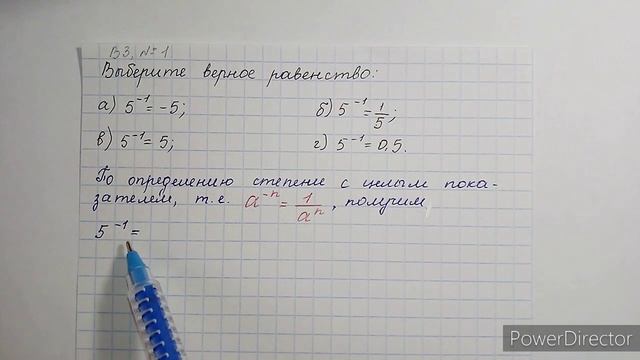 В3, №1
Выберите верное равенство:
а) 5⁻¹ = -5; б) 5⁻¹ = 1/5;
в) 5⁻¹ = 5; г) 5⁻¹ = 0,5.
По определению степени с целым пока-
зателем, т.е. a⁻ⁿ = 1/aⁿ, получим
5⁻¹ =
PowerDirector